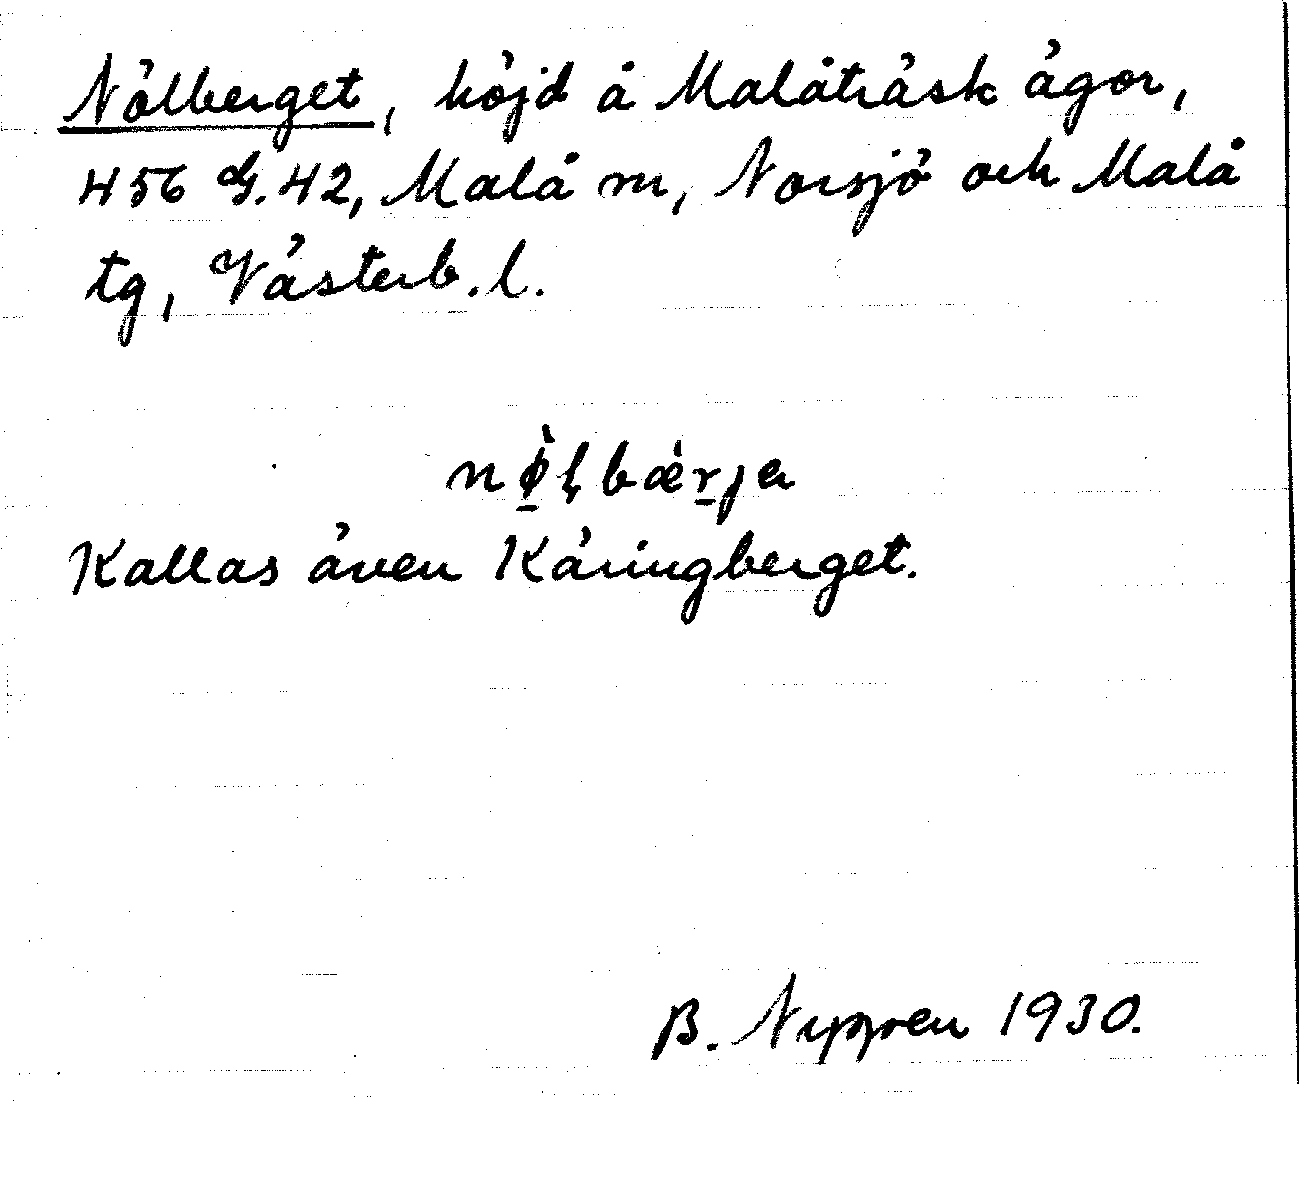 Nölberget, höjd å Malåträsk ägor,
456 G. 42, Malå sn, Norsjö och Malå
tg, Västerb. l.
nø̱̀ḷbæṟja
Kallas även Käringberget.
B. 1930.